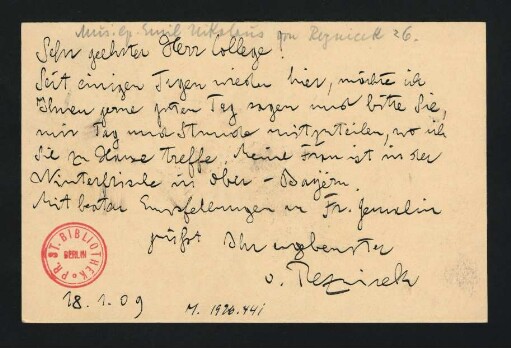 Mus. ep. Emil Nikolaus von Reznicek 26.
Sehr geehrter Herr College!
Seit einigen Tagen wieder hier, möchte ich
Ihnen gerne guten Tag sagen und bitte Sie,
mir Tag und Stunde mitzuteilen, wo ich
Sie zu Hause treffe. Meine Frau ist in der
Winterfrische in Ober-Bayern.
Mit besten Empfelungen an Fr. Gemalin
grüßt Ihr ergebenster
v. Reznicek
PR. ST. BIBLIOTHEK
BERLIN
18.1.09
M. 1926.441